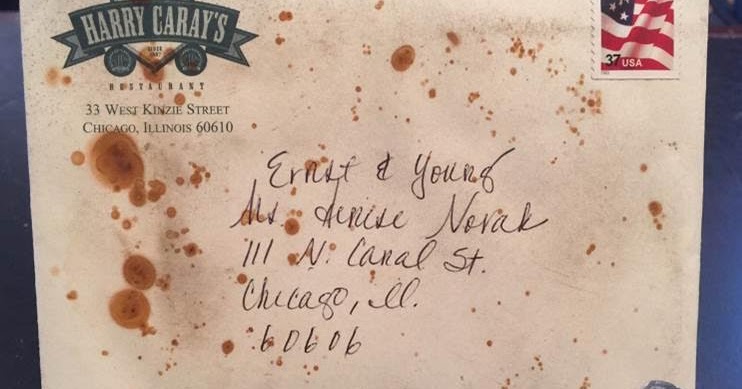 HARRY CARAY'S
SINCE
1987
RESTAURANT
33 WEST KINZIE STREET
CHICAGO, ILLINOIS 60610
37 USA
Ernst & Young
Ms. Denise Novak
111 N. Canal St.
Chicago, Ill.
60606